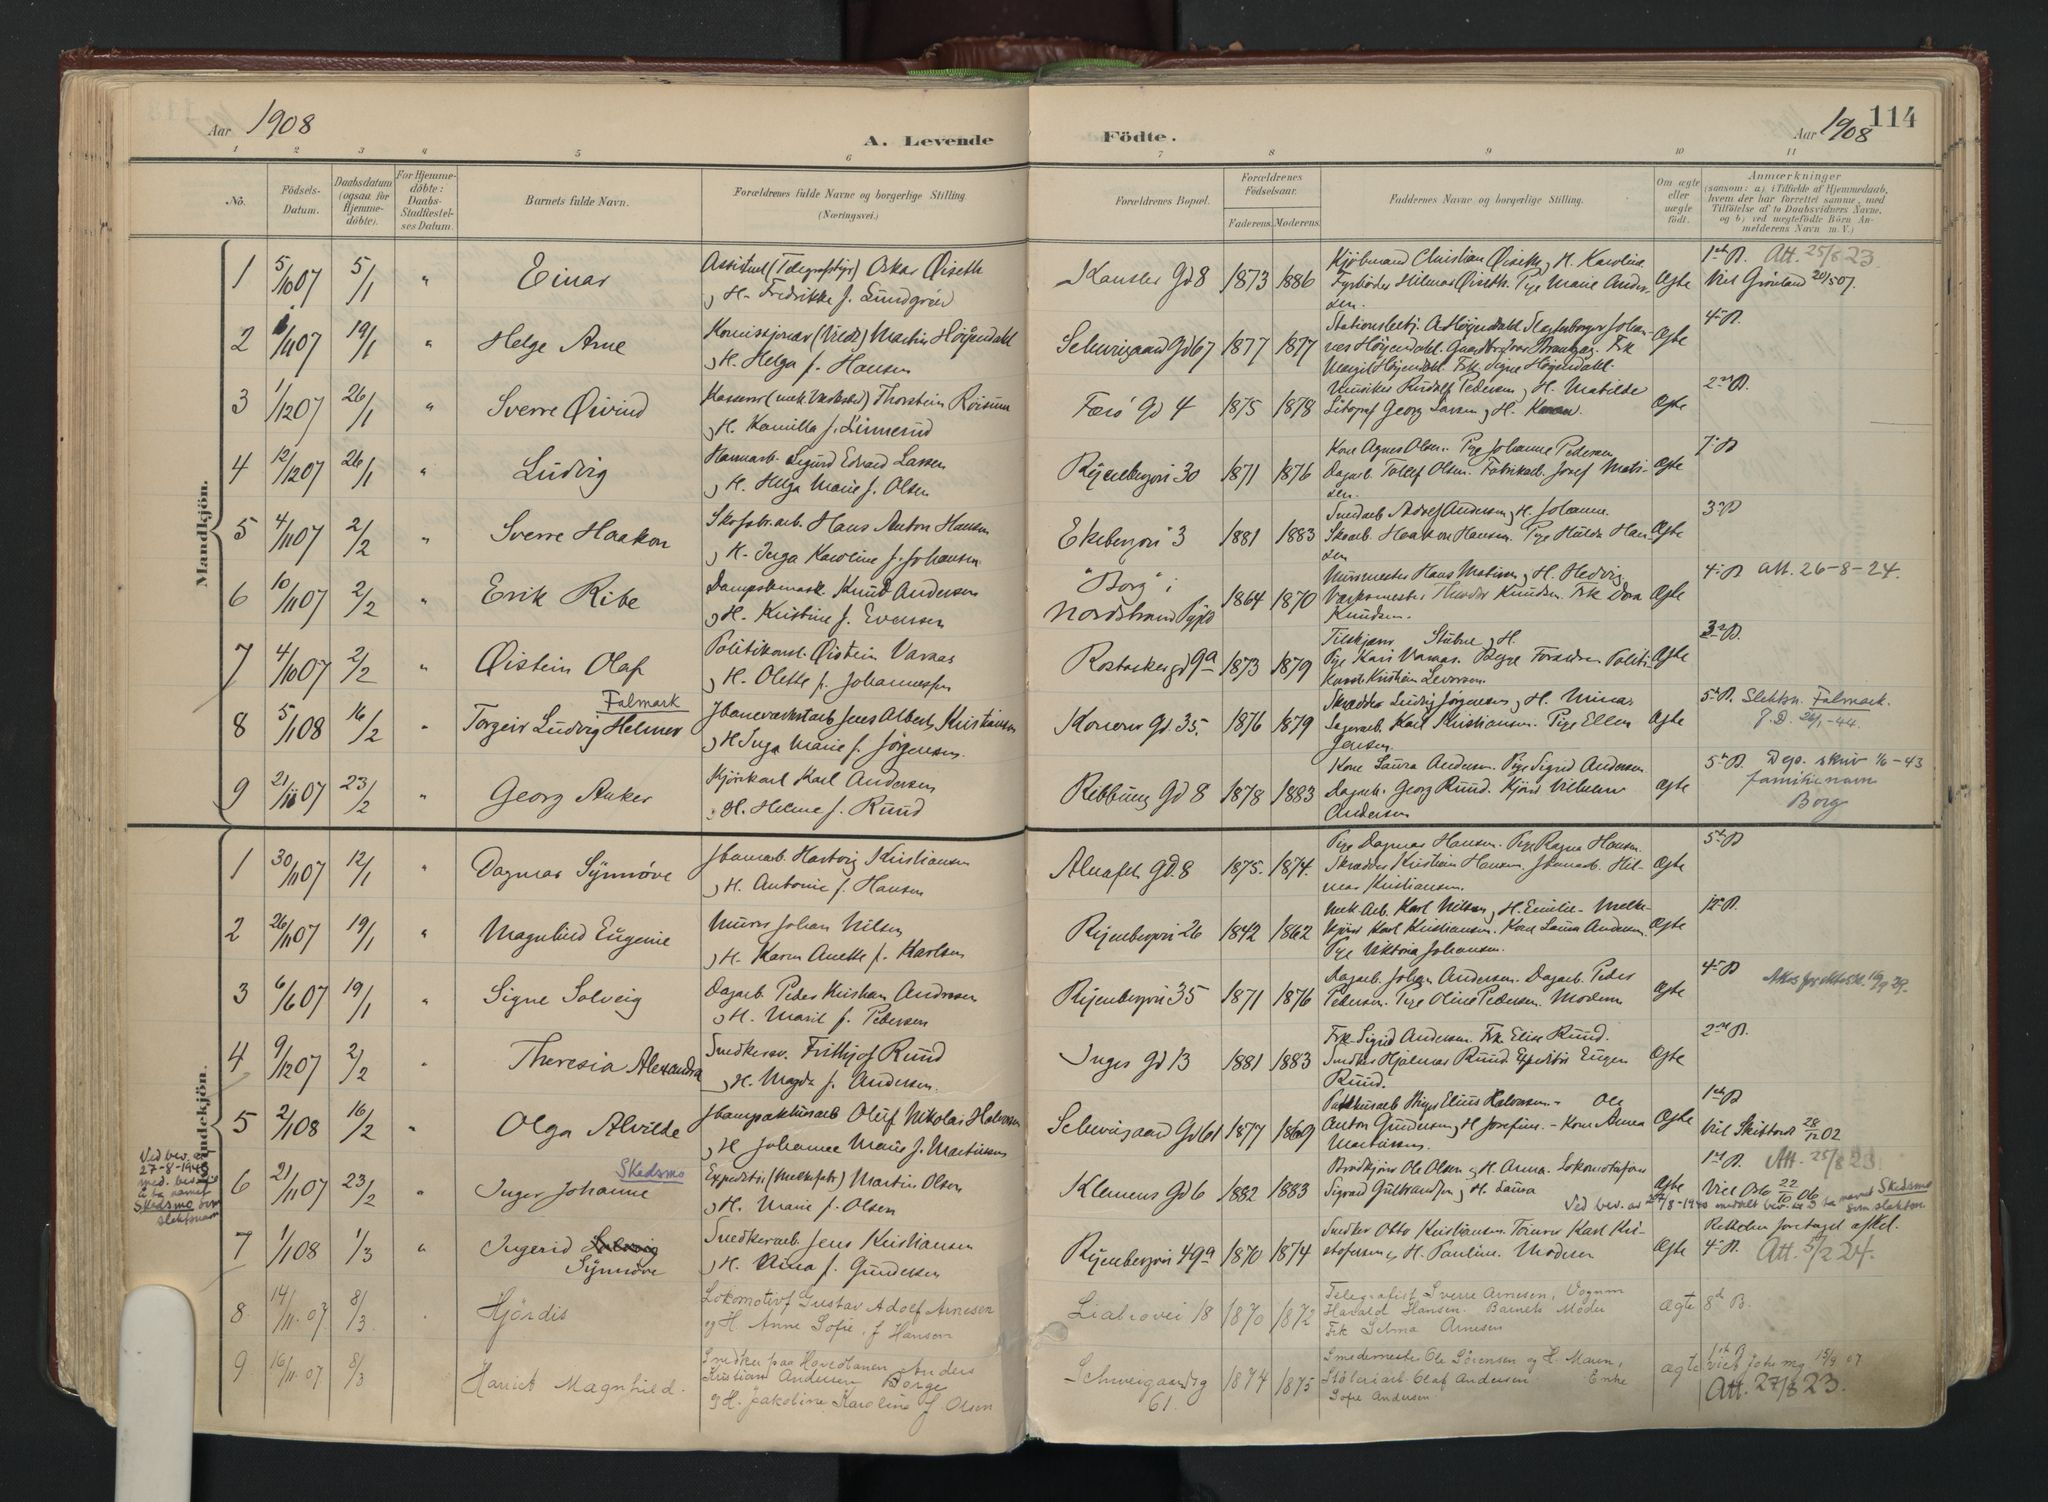 Aar 1908
A. Levende
Födte.
Aar 1908
114
1 2 3 4 5 6 7 8 9 10 11
No.
Födsels-Datum.
Daabsdatum (ogsaa for Hjemmedöbte).
For Hjemmedöbte: Daabs-Stadfæstelses Datum.
Barnets fulde Navn.
Forældrenes fulde Navne og borgerlige Stilling (Næringsvei.)
Forældrenes Bopæl.
Forældrenes Födselsaar.
Faderens. Moderens.
Faddernes Navne og borgerlige Stilling.
Om ægte eller uægte födt.
Anmærkninger
(saasom: a) i Tilfælde af Hjemmedaab, hvem der har forrettet samme, med Tilföielse af to Daabsvidners Navne, og b) ved uægtefödte Börn Anmelderens Navn m. V.)
Mandkjön.
1 5/10 07 5/1 " Einar
Assistent (Telegrafstyr) Oskar Øiseth
og H. Fredrikke f. Lundgren
Kansler Gd 8 1873 1886
Kjöbmand Christian Øiseth og H. Karoline
Fyrböder Hilmar Øiseth. Pige Marie Andersen.
Ægte 1ste B. Att. 25/8 23
Viel Grönland 20/5 07.
2 /11 07 19/1 " Helge Arne
Martin Höijendahl
og H. Helga f. Hansen
Schweigaard Gd 67 1877 1877
Stationsbetj. A. Höijendahl. Johannes Höijendahl.
Frk Margit Höijendahl. Frk. Signe Höijendahl.
Ægte 4de B.
3 1/12 07 26/1 " Sverre Øivind
Kasserer (mek. Værksted) Thorstein
og H. Kamilla f. Linnerud
Færö Gd 4 1875 1878
Musiker Rudolf Pedersen og H. Matilde
Litograf Georg Larsen og H. Karen
Ægte 2den B.
4 12/12 07 26/1 " Ludvig
Sigurd Edvard Lassen
og H. Helga Marie f. Olsen
Ryenbergvei 30 1871 1876
Kone Agnes Olsen. Pige Johanne Pedersen
Dagarb. Tollef Olsen. Fabrikarb. Josef Matisen.
Ægte 7de B
5 4/11 07 2/2 " Sverre Haakon
Skofabr.arb. Hans Anton Hansen
og H. Inga Karoline f. Johansen
Ekebergvei 3 1881 1883
Smedarb Adolf Andersen og H. Johanne.
Skoarb. Haakon Hansen. Pige Hulda Hansen
Ægte 3die B
6 10/11 07 2/2 " Erik Ribe
Knut Andersen
og H. Kristine f. Evensen
"Borg" i Nordstrand 1864 1870
Murmester Hans Matisen og H. Hedvig
Værksmester Theodor Knudsen. Frk Dora Knudsen.
Ægte 4de B Att. 26-8-24.
7 4/10 07 2/2 " Øistein Olaf
Politikonst. Øistein Varaas
og H. Olette f. Johannessen
gd 9a 1873 1879
Stubne og H.
Pige Kari Varaas. Politikonst. Kristian
Ægte 3die B.
8 5/1 08 16/2 " Torgeir Ludvig Helmer
Falmark
Jbaneværkstarb Jens Albert Kristiansen
og H. Inga Marie f. Jörgensen.
Konows Gd. 35. 1876 1879
Skrædder Ludvig Jörgensen og H. Minna
Lagerarb. Karl Kristiansen. Pige Ellen Jensen
Ægte 5te B. Slektsn. Falmark.
J.D. 26/1-44.
9 21/10 07 23/2 " Georg Anker
Kjörekarl Karl Andersen
og H. Helene f. Ruud
Ribbung Gd 8 1878 1883
Kone Laura Andersen. Pige Sigrid Andersen
Dagarb. Georg Ruud. Kjörer Vilhelm Andersen
Ægte 5te B. Dep. skriv 1/6-43
familienavn
Borg
Kvindekjön.
1 30/11 07 12/1 " Dagmar Synnöve
Jbanearb. Hartvig Kristiansen
og H. Antonie f. Hansen
Alnafet. Gd. 8 1875. 1874.
Pige Dagmar Hansen. Pige Ragna Hansen.
Skrædder Kristian Hansen. Jbanearb. Hilmar Kristiansen.
Ægte 5te B
2 26/11 07 19/1 " Magnhild Eugenie
Murer Johan Nilsen
og H. Karen Anette f. Karlsen
Ryenbergvei 26 1842 1862
Mek. Arb. Karl Nilsen og H. Emilie. Melkekjörer Karl Kristiansen. Kone Laura Andersen.
Pige Viktoria Johansen.
Ægte 12te B.
3 6/6 07 19/1 " Signe Solveig
Dagarb. Peder Kristian Andersen
og H. Marie f. Pedersen
Ryenbergvei 35 1871 1876
Dagarb. Johan Andersen. Dagarb. Peder
Pedersen. Pige Oline Pedersen. Moderen
Ægte 4de B
4 9/12 07 2/2 " Theresia Alexandra
Snedkersv. Frithjof Ruud
og H. Magda f. Andersen.
Inges Gd 13 1881 1883
Frk. Sigrid Andersen. Frk Elise Ruud.
Snedker Hjalmar Ruud. Expeditör Eugen Ruud.
Ægte 2den B.
5 2/1 08 16/2 " Olga Alvilde
Oluf Nikolas Halvorsen
og H. Johanne Marie f. Martinsen
Schweigaard Gd 61 1877 1869
Pakhusarb Elius Halvorsen. Ole
Anton Gundersen og H. Josefine. Kone Anna
Martinsen.
Ægte 1ste B
Viel 28/12 02
6 21/11 07 23/2 " Inger Johanne
Skedsmo
Expeditör (Melkeforr) Martin Olsen
og H. Marie f. Olsen
Klemens Gd 6 1882 1883
Brödkjörer Ole Olsen og H. Anna. Lokomotivförer
Sigvard Gulbrandsen og H. Laura
Ægte 1ste B. Att. 25/8 23.
Viel Oslo 22/10 06
Ved bev. av 27/8-1940 meddelt bev. til å ta navnet Skedsmo som slektsn.
Ved bev. av
27-8-1940
med. bev. til
å ta navnet
Skedsmo som
slektsnavn
7 1/1 08 1/3 " Ingerid Solveig
Synnöve
Snedkerarb. Jens Kristiansen
og H. Nina f. Gundersen
Ryenbergvei 49a 1870 1874
Snedker Otto Kristiansen. Karl Kristofersen og H. Pauline. Moderen
Ægte 4de B. Att. 5/2 24.
8 14/11 07 8/3 " Hjördis
Lokomotivf Gustav Adolf Arnesen
og H. Anne Sofie f Hansen
Liabrovei 18 1870 1872
Telegrafist Sverre Arnesen, Vognm
Harald Hansen. Barnets Moder
Frk Selma Arnesen
ægte 8de B.
9 16/11 07 8/3 Harriet Magnhild.
Snedker paa Hovedbanen Anders
Kristian Andersen Borge
og H. Jakobine Karoline f. Olsen
Schweigaardsg 61. 1874 1875
Smedemester Ole Sörensen og H. Maren,
Støleriarb Olaf Andersen Enke
Sofie Andersen
ægte 1ste B
viet 15/9 07
Att. 27/8 23.